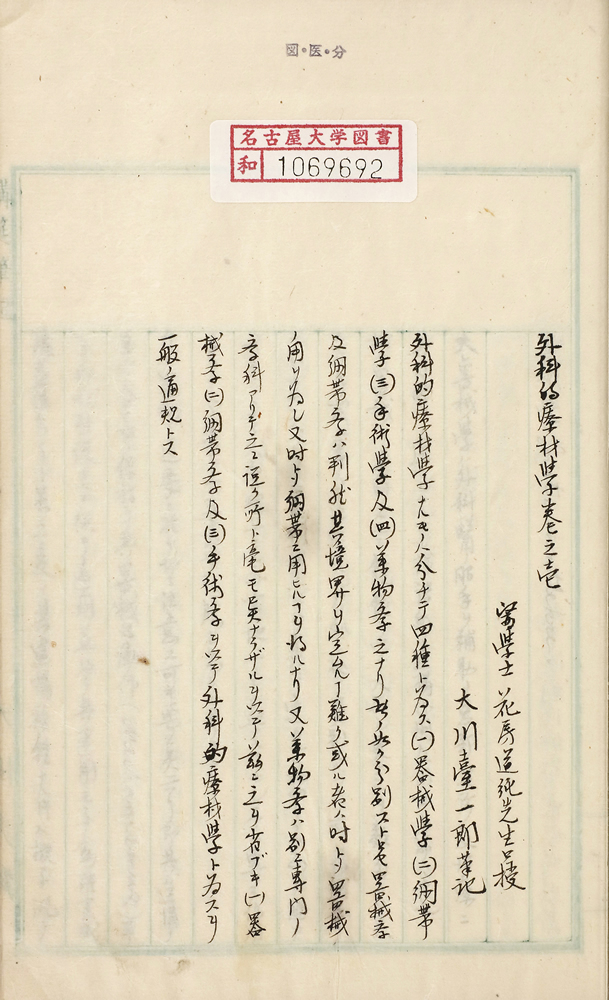 図・医・分
名古屋大学図書
和 1069692
外科的療材学巻之壱
医学士 花房道純先生口授
大川臺一郎筆記
外科的療材学ハ分チテ四種ト為ス(一)器械学(二)繃帯
学(三)手術学及(四)薬物学之ナリ 分別スト雖器械学
及繃帯学ハ判然其境界ヲ定ムルヿ難ク或ル者ハ時トシテ器械
ノ用ヲ為シ又時トシテ繃帯ニ用ヒルヿヲ得ルナリ又薬物学ハ別ニ専門ノ
学科アリテ之ニ説ク所ト毫モ異ナラザルヲ以テ茲ニ之ヲ省ブキ(一)器
械学(二)繃帯学及(三)手術学ヲ以テ外科的療材学ト為スヲ
一般ノ通規トス